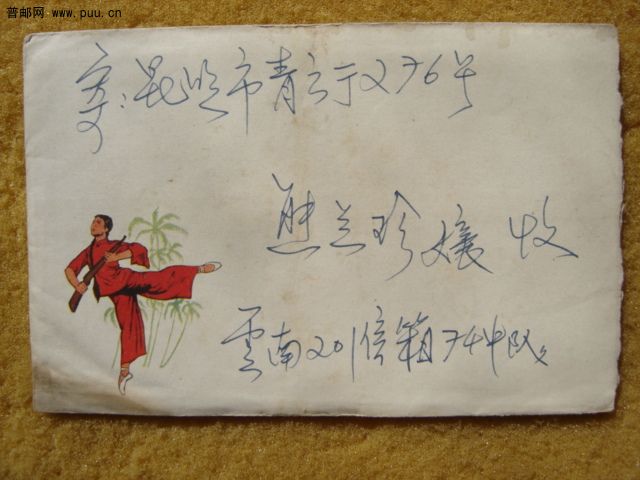 普邮网 www.puu.cn
交：昆明市青云街276号
熊兰珍孃收
云南201信箱74中队